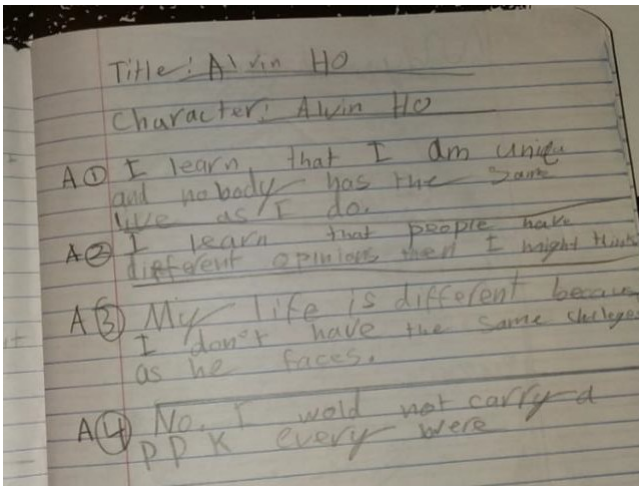 Title: Alvin Ho
Character: Alvin Ho
A① I learn that I am uniqu
and nobody has the same
live as I do.
A② I learn that people have
different opinions then I might think
A③ My life is different because
I don't have the same
as he faces.
A④ No. I wold not carry a
PPK every were